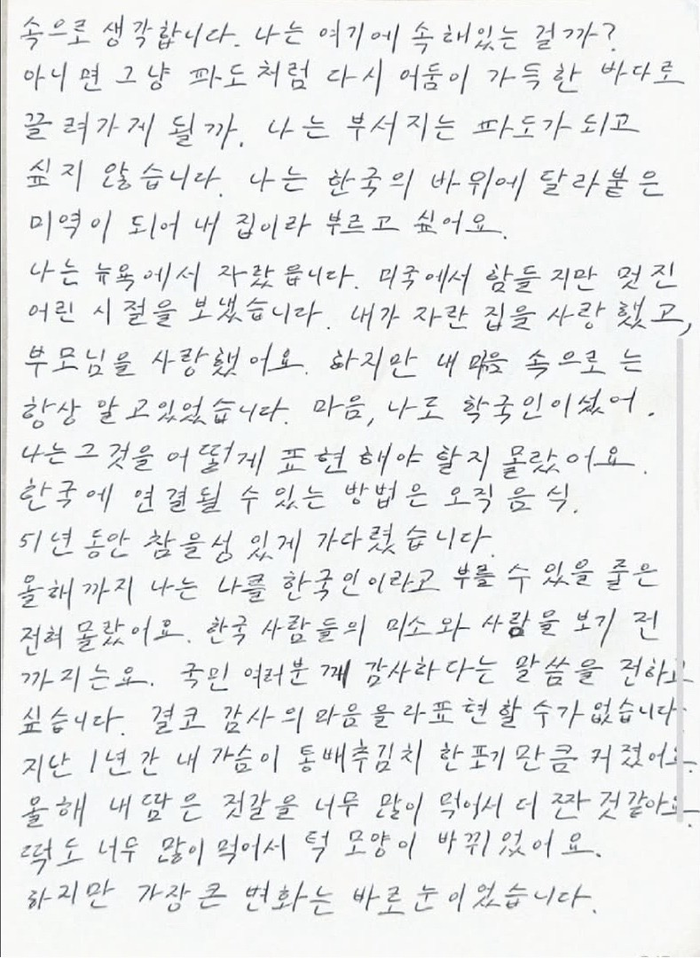 속으로 생각합니다. 나는 여기에 속해있는 걸까?
아니면 그냥 파도처럼 다시 어둠이 가득한 바다로
끌려가게 될까. 나는 부서지는 파도가 되고
싶지 않습니다. 나는 한국의 바위에 달라붙은
미역이 되어 내 집이라 부르고 싶어요.
나는 뉴욕에서 자랐읍니다. 미국에서 함들지만 멋진
어린 시절을 보냈습니다. 내가 자란 집을 사랑했고,
부모님을 사랑했어요. 하지만 내 마음 속으로는
항상 알고있었습니다. 마음, 나로 학국인이셨어.
나는 그것을 어떻게 표현해야 할지 몰랐어요.
한국에 연결될 수 있는 방법은 오직 음식.
51년 동안 참을성 있게 가다렸습니다.
올해까지 나는 나를 한국인이라고 부를 수 있을 줄은
전혀 몰랐어요. 한국 사람들의 미소와 사람을 보기 전
까지는요. 국민 여러분께 감사하다는 말씀을 전하고
싶습니다. 결코 감사의 마음을 라표현할 수가 없습니다.
지난 1년간 내 가슴이 통배추김치 한 포기만큼 커졌어요.
올해 내 땀은 젓갈을 너무 많이 먹어서 더 짠 것같아요.
떡도 너무 많이 먹어서 턱 모양이 바뀌었어요.
하지만 가장 큰 변화는 바로 눈이었습니다.